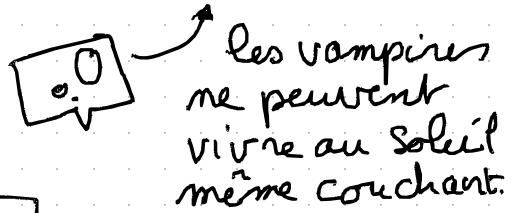 les vampires
ne peuvent
vivre au soleil
même couchant.